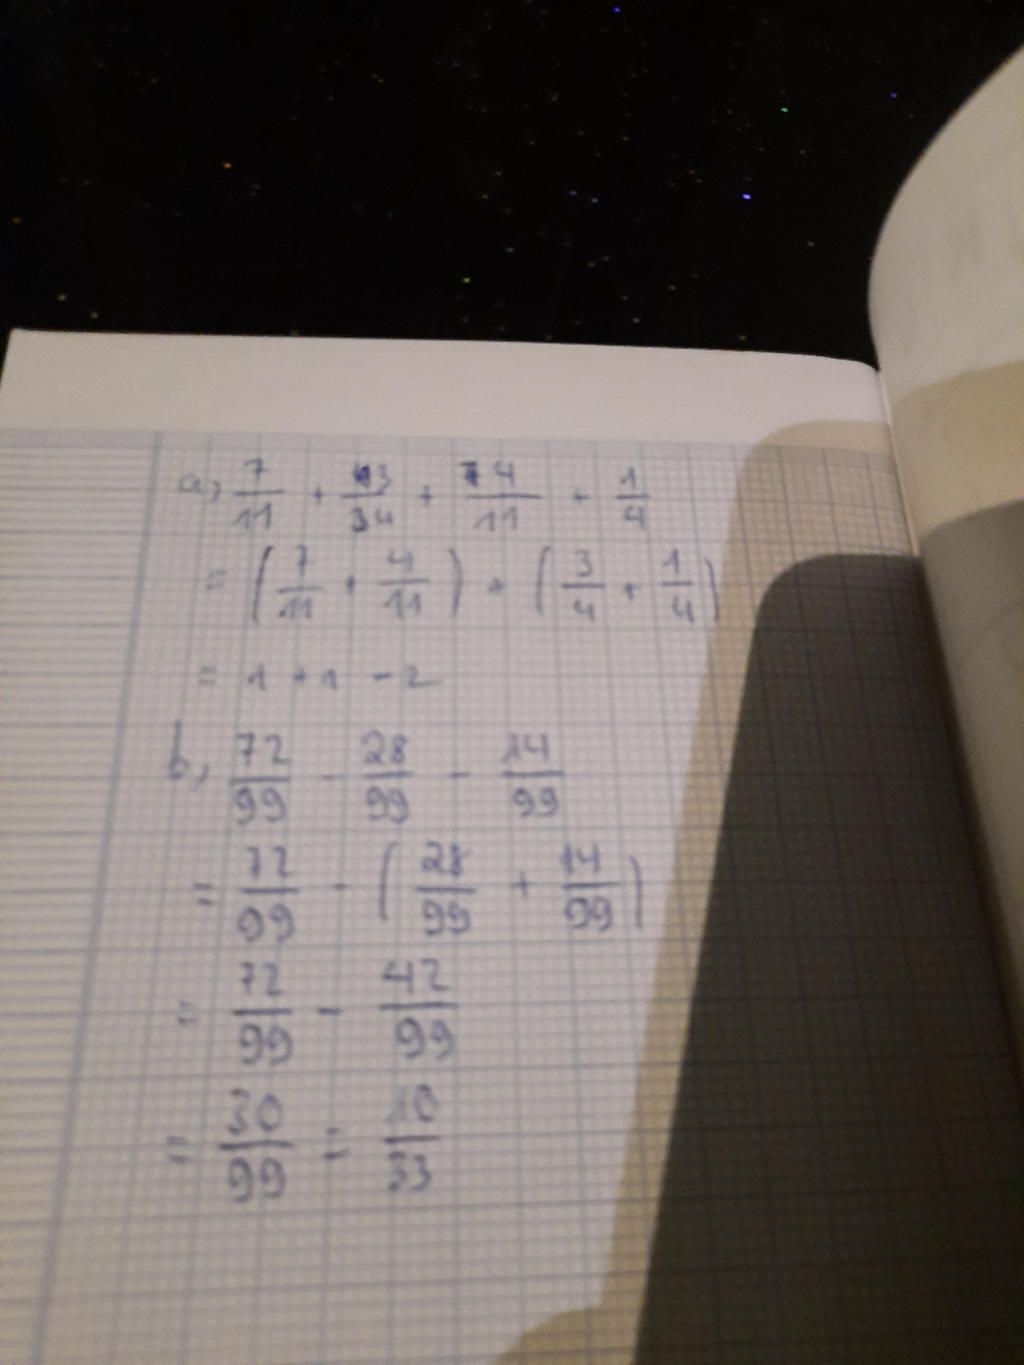 a, 7/11 + 3/34 + 4/11 + 1/4
= (7/11 + 4/11) + (3/4 + 1/4)
= 1 + 1 - 2
b, 72/99 - 28/99 - 14/99
= 72/99 - (28/99 + 14/99)
= 72/99 - 42/99
= 30/99 = 10/33